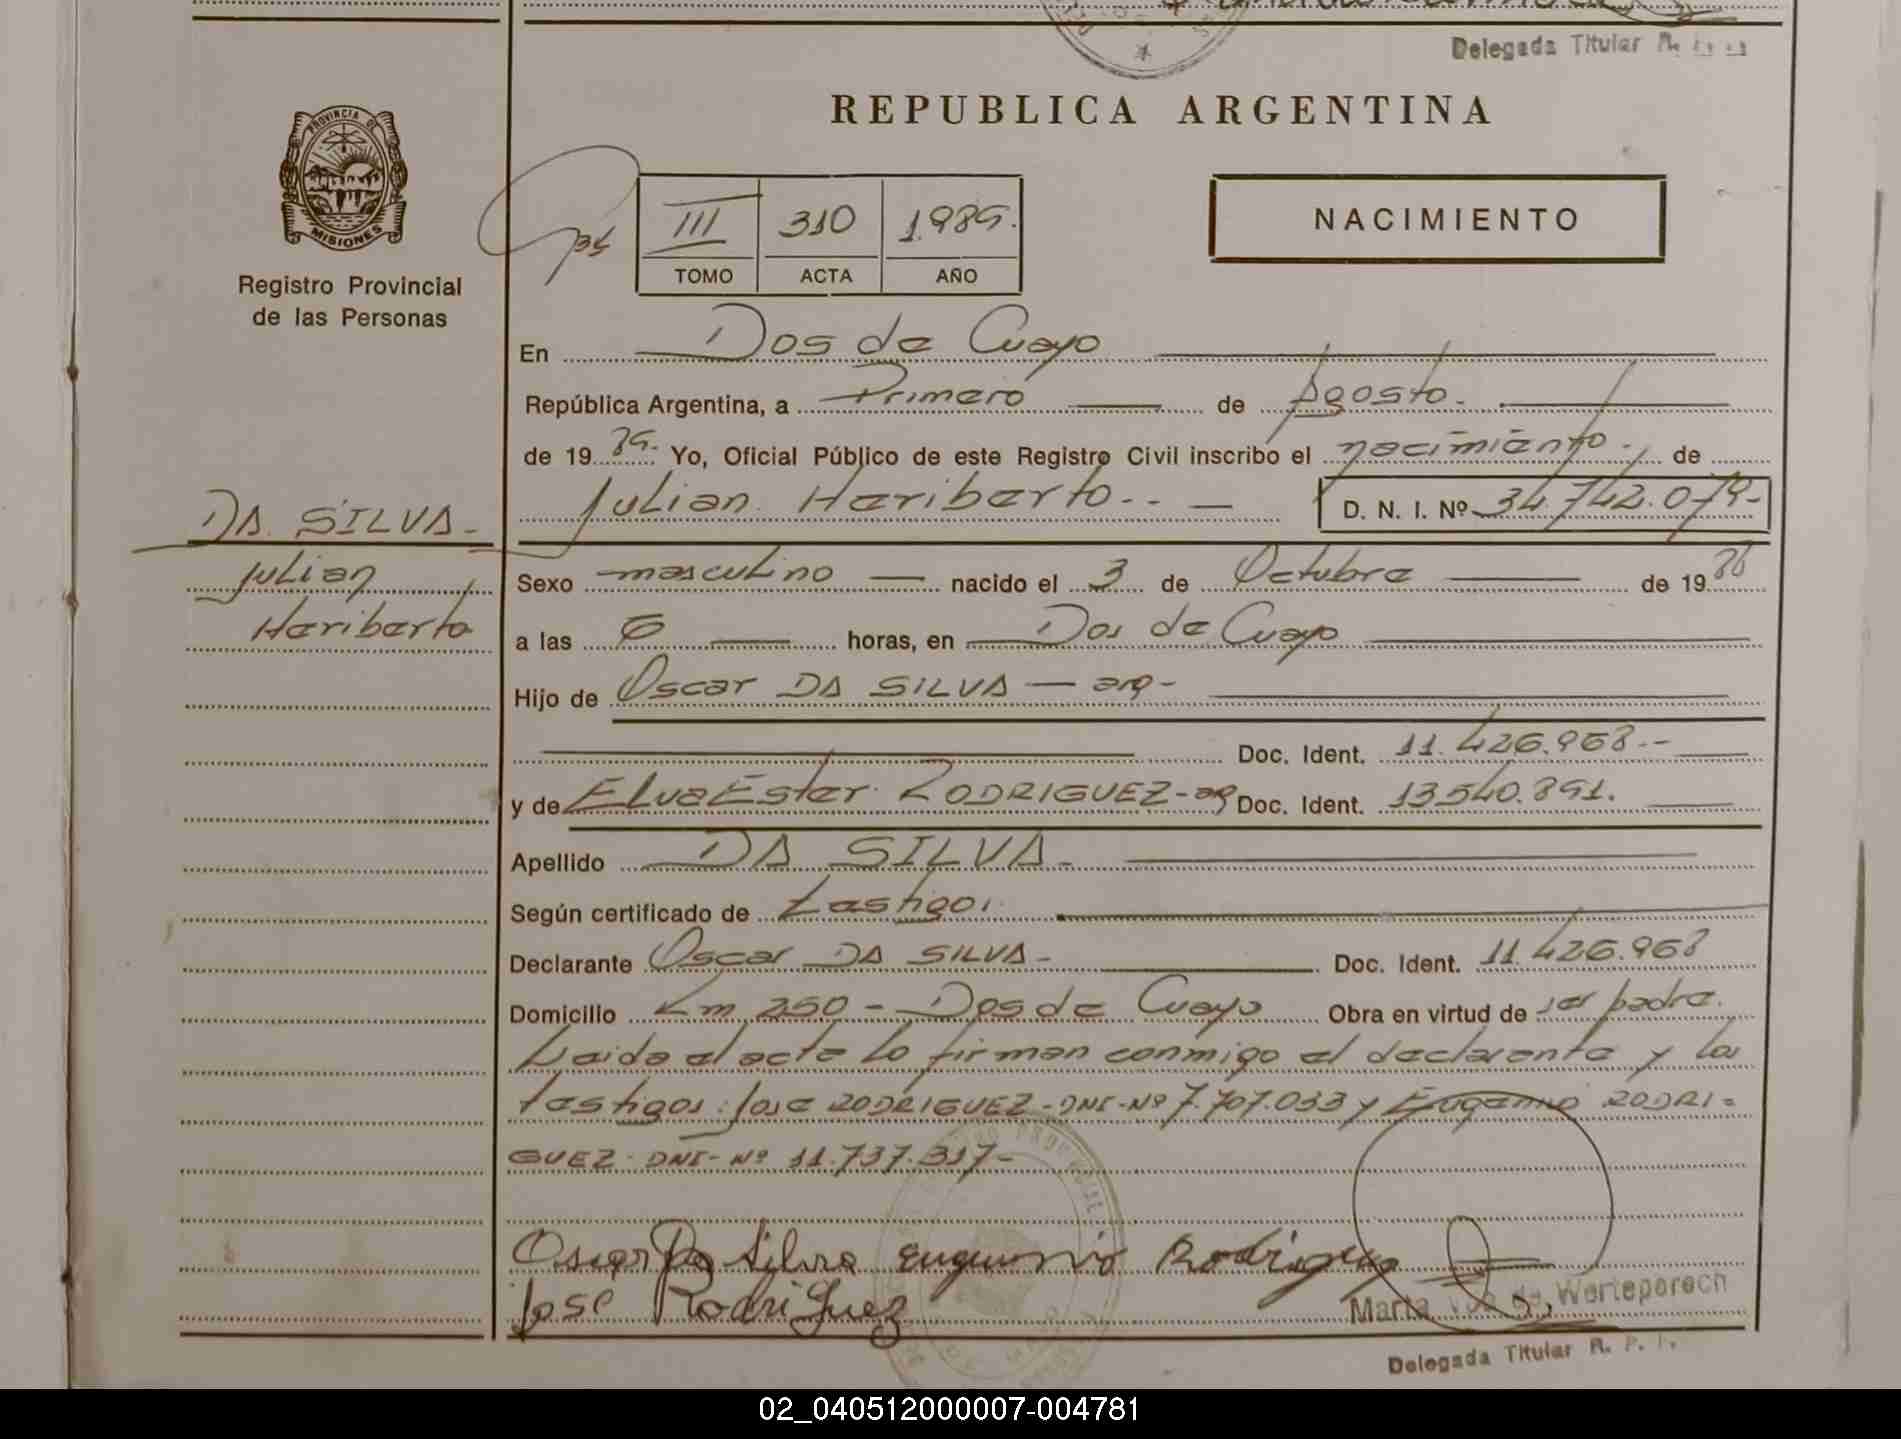 Delegada Titular R.
PROVINCIA DE
MISIONES
Registro Provincial
de las Personas
REPUBLICA ARGENTINA
III 310 1.989.
TOMO ACTA AÑO
NACIMIENTO
En Dos de Cuayo
República Argentina, a Primero de Agosto.
de 19 89. Yo, Oficial Público de este Registro Civil inscribo el nacimiento. de
Julian Heriberto.- D. N. I. Nº 34.742.079-
DA SILVA-
Julian
Heriberto
Sexo masculino nacido el 3 de Octubre de 19
a las 6 horas, en Dos de Cuayo
Hijo de Oscar DA SILVA - arg-
Doc. Ident. 11.426.968.-
y de Elva Ester RODRIGUEZ-arg Doc. Ident. 13.540.891.
Apellido DA SILVA.
Según certificado de testigos.
Declarante Oscar DA SILVA- Doc. Ident. 11.426.968
Domicilio Km 250 - Dos de Cuayo Obra en virtud de ser padre.
Leida el acta lo firman conmigo el declarante y los
testigos: Jose RODRIGUEZ-DNI-Nº 7.707.033 y Eugenio RODRI=
GUEZ- DNI-Nº 11.737.317-
Oscar Da Silva Eugenio Rodriguez
Jose RodriGuez
Marta Vda de Werteperech
Delegada Titular R. P. P.
02_040512000007-004781